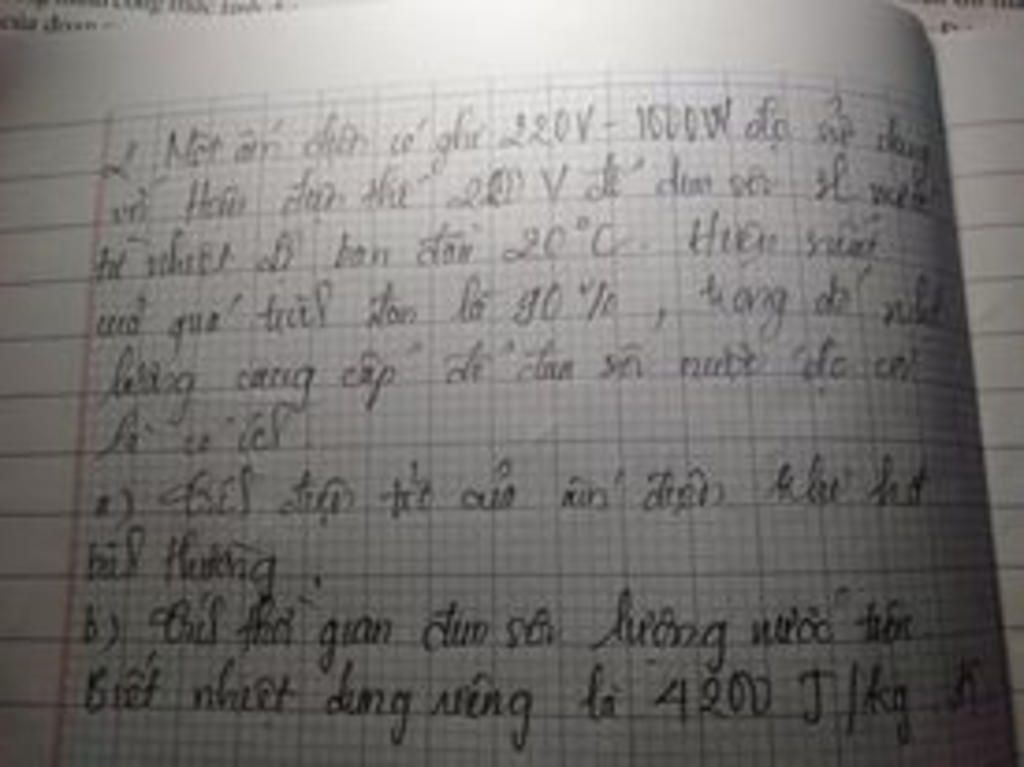 của đoạn
Một ấm điện có ghi 220V - 1000W đc sử dụng
với Hiệu điện thế 220 V để đun sôi nước
từ nhiệt độ ban đầu 20°C. Hiệu suất
của quá trình đun là 90%, trong đó nhiệt
lượng cung cấp để đun sôi nước đc coi
là có ích
a) tính điện trở của ấm điện khi hđ
bình thường.
b) tính thời gian đun sôi lượng nước trên
Biết nhiệt dung riêng là 4200 J/kg K